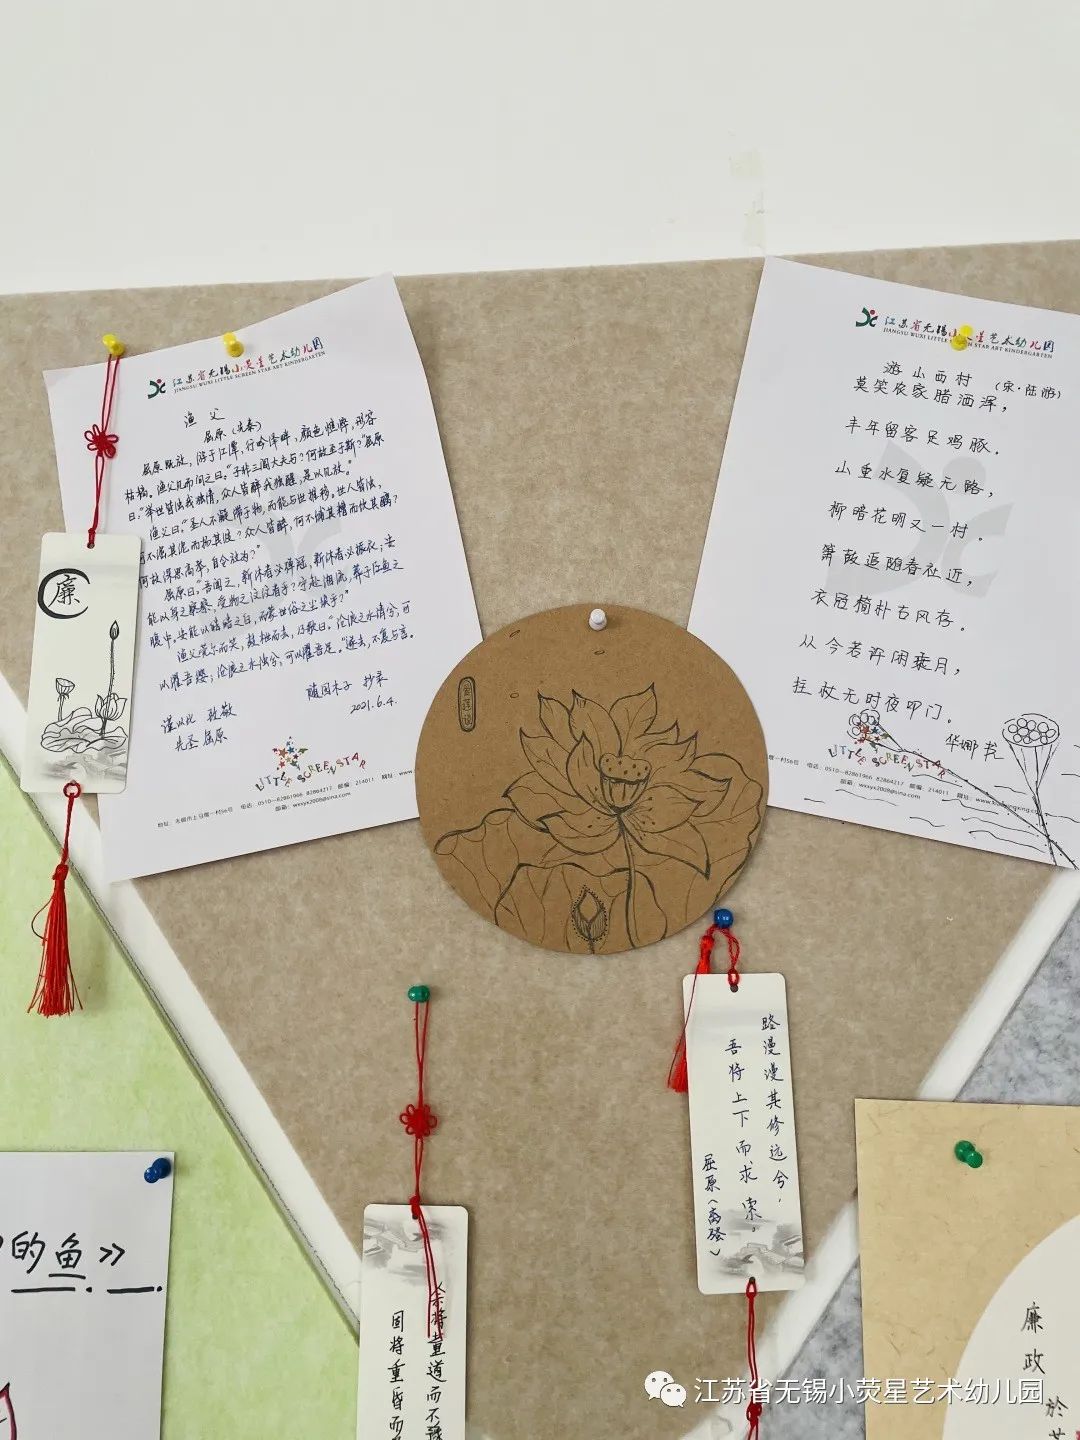 江苏省无锡小荧星艺术幼儿园
JIANGSU WUXI LITTLE SCREEN STAR ART KINDERGARTEN
渔父
屈原（先秦）
屈原既放，游于江潭，行吟泽畔，颜色憔悴，形容
枯槁。渔父见而问之曰："子非三闾大夫与？何故至于斯？"屈原
曰："举世皆浊我独清，众人皆醉我独醒，是以见放。"
渔父曰："圣人不凝滞于物，而能与世推移。世人皆浊，
何不淈其泥而扬其波？众人皆醉，何不餔其糟而饮其醨？
何故深思高举，自令放为？"
屈原曰："吾闻之，新沐者必弹冠，新浴者必振衣；安
能以身之察察，受物之汶汶者乎？宁赴湘流，葬于江鱼之
腹中。安能以皓皓之白，而蒙世俗之尘埃乎？"
渔父莞尔而笑，鼓枻而去，乃歌曰："沧浪之水清兮，可
以濯吾缨；沧浪之水浊兮，可以濯吾足。"遂去，不复与言。
随园木子 抄录
2021.6.4.
谨以此 致敬
先圣 屈原
LITTLE SCREEN STAR
地址：无锡市上马墩一村56号 电话：0510-82861966 82864217 邮编：214011
邮箱：wxxyx2008@sina.com
廉
爱莲说
江苏省无锡小荧星艺术幼儿园
JIANGSU WUXI LITTLE SCREEN STAR ART KINDERGARTEN
游山西村 （宋·陆游）
莫笑农家腊酒浑，
丰年留客足鸡豚。
山重水复疑无路，
柳暗花明又一村。
箫鼓追随春社近，
衣冠简朴古风存。
从今若许闲乘月，
拄杖无时夜叩门。
华娜书
LITTLE SCREEN STAR
一村56号 电话：0510-82861966 82864217 邮编：214011
邮箱：wxxyx2008@sina.com
路漫漫其修远兮，
吾将上下而求索。
屈原《离骚》
余将董道而不豫
固将重昏而
的鱼》
廉政
於
江苏省无锡小荧星艺术幼儿园